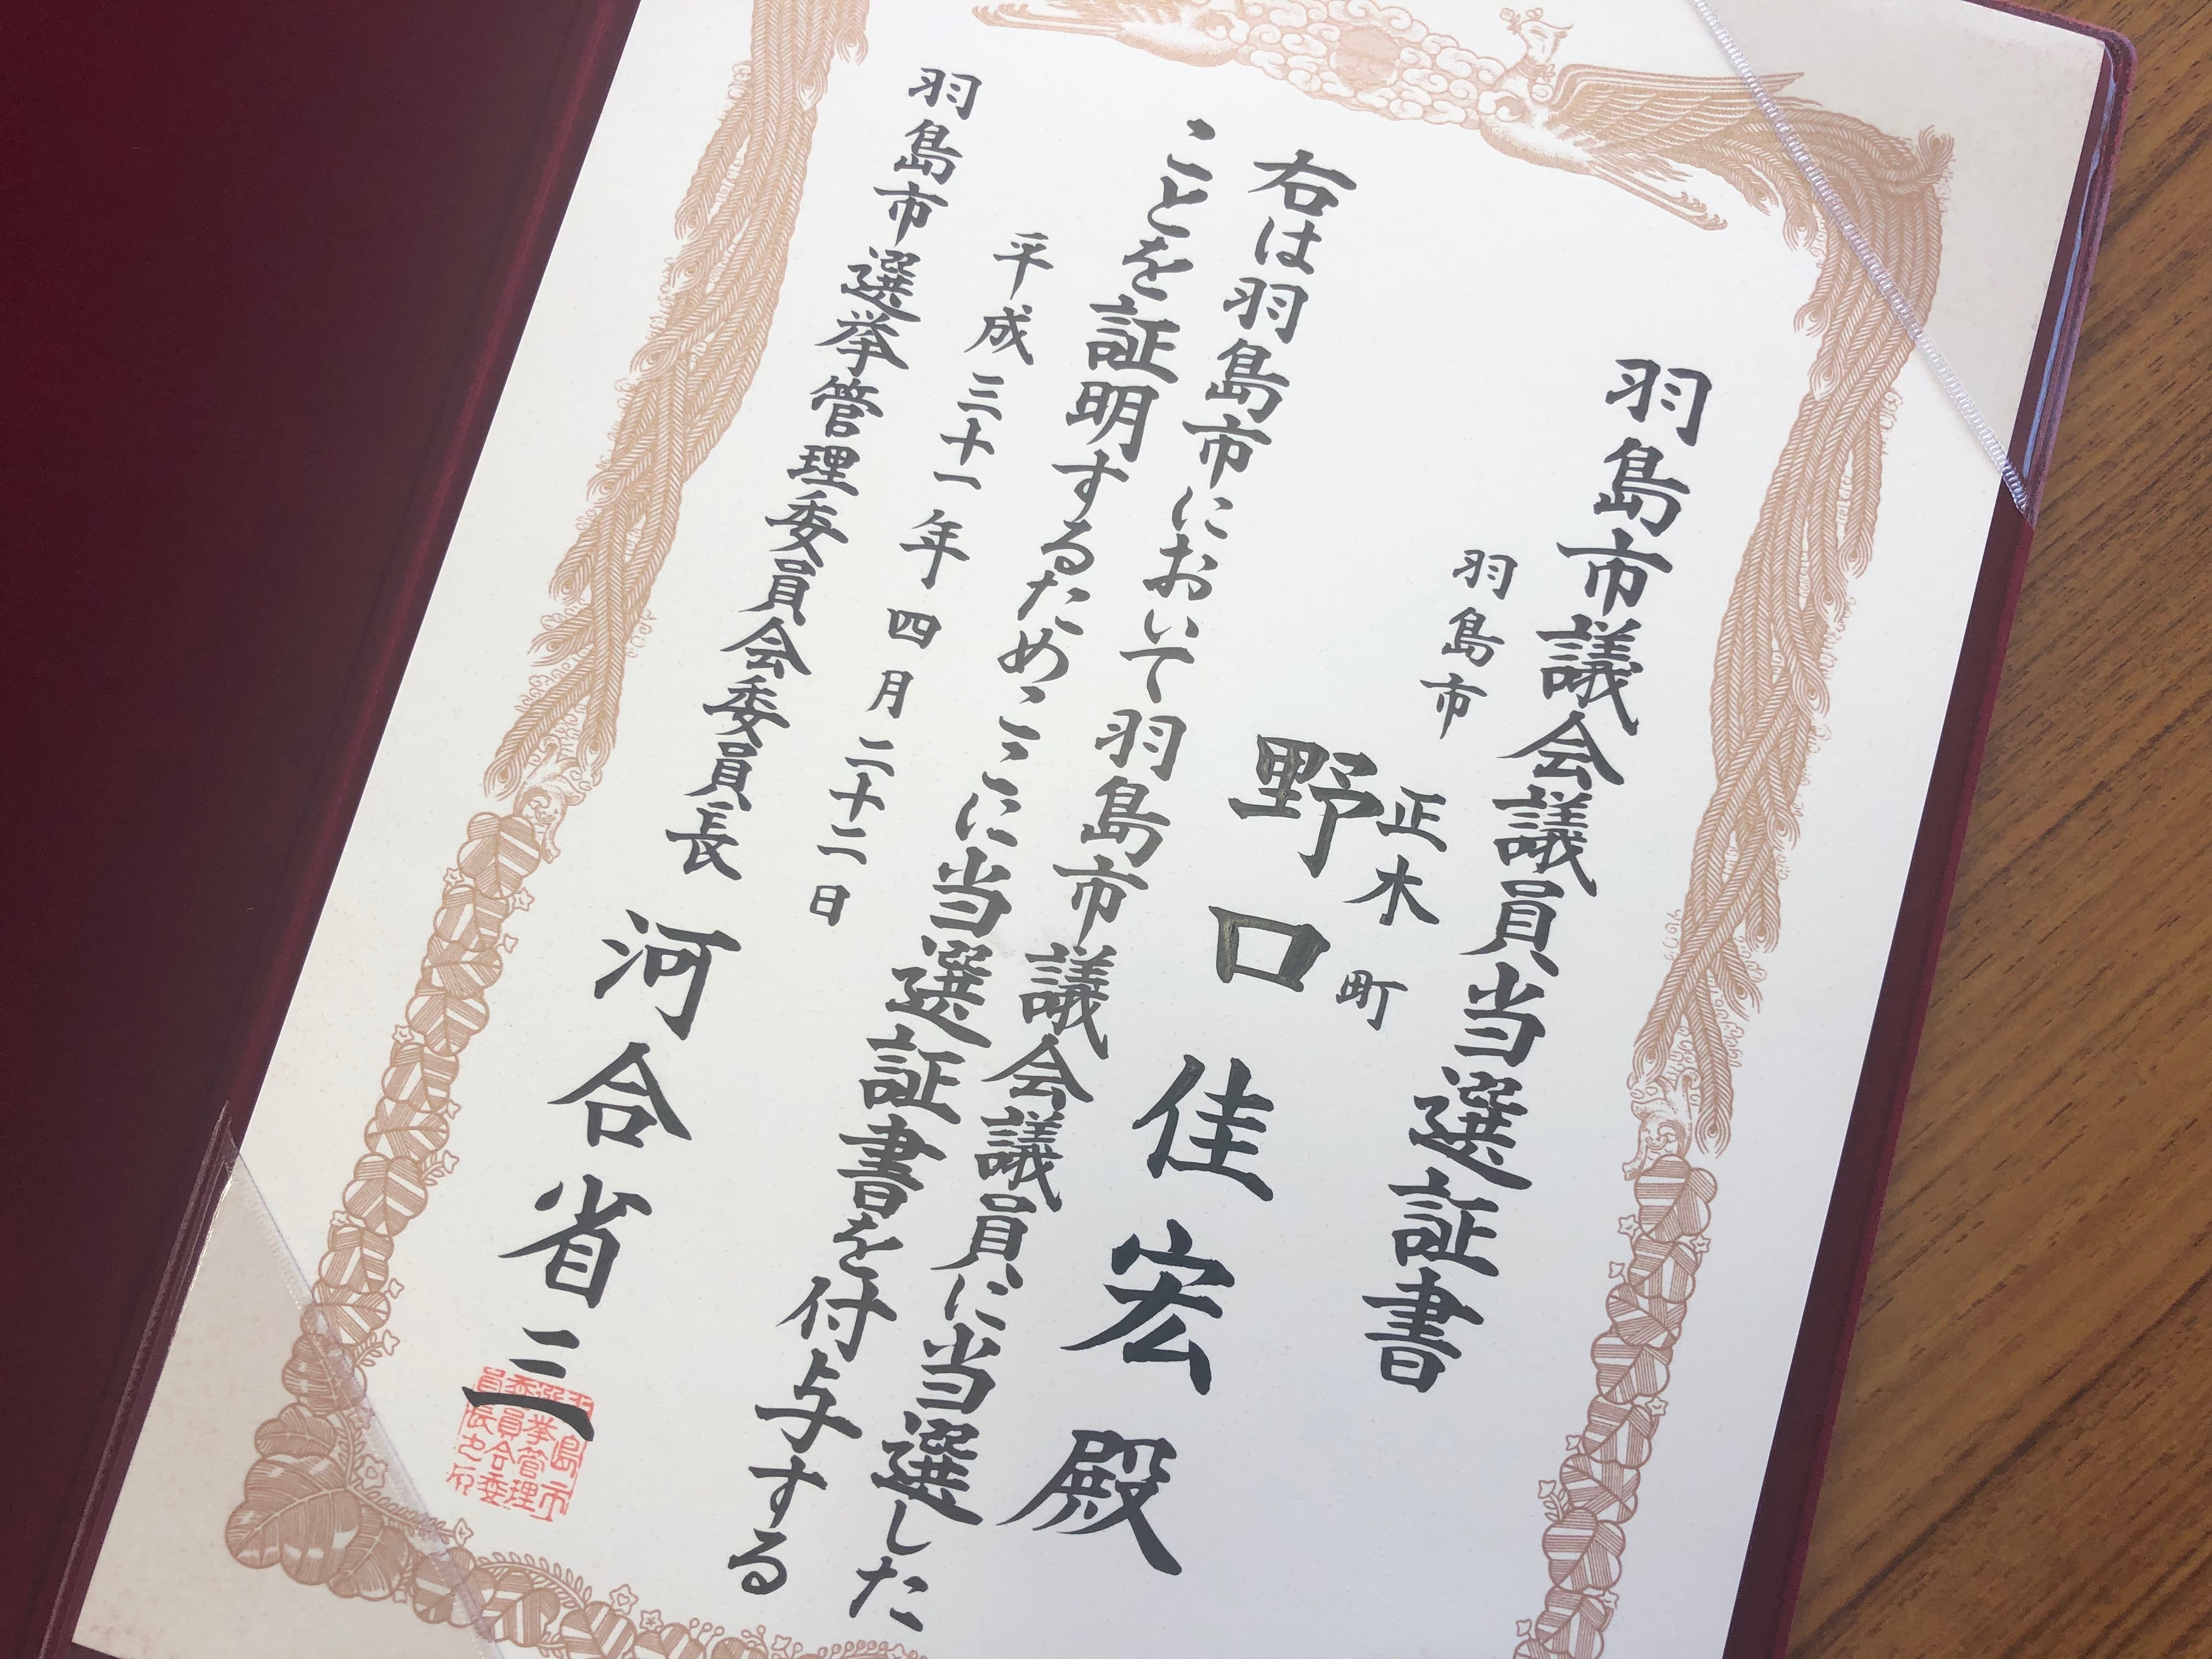 羽島市議会議員当選証書
羽島市
正木町
野口佳宏殿
右は羽島市において羽島市議会議員に当選した
ことを証明するためここに当選証書を付与する
平成三十一年四月二十二日
羽島市選挙管理委員会委員長
河合省三
羽島市
選挙管理
委員会委
員長之印